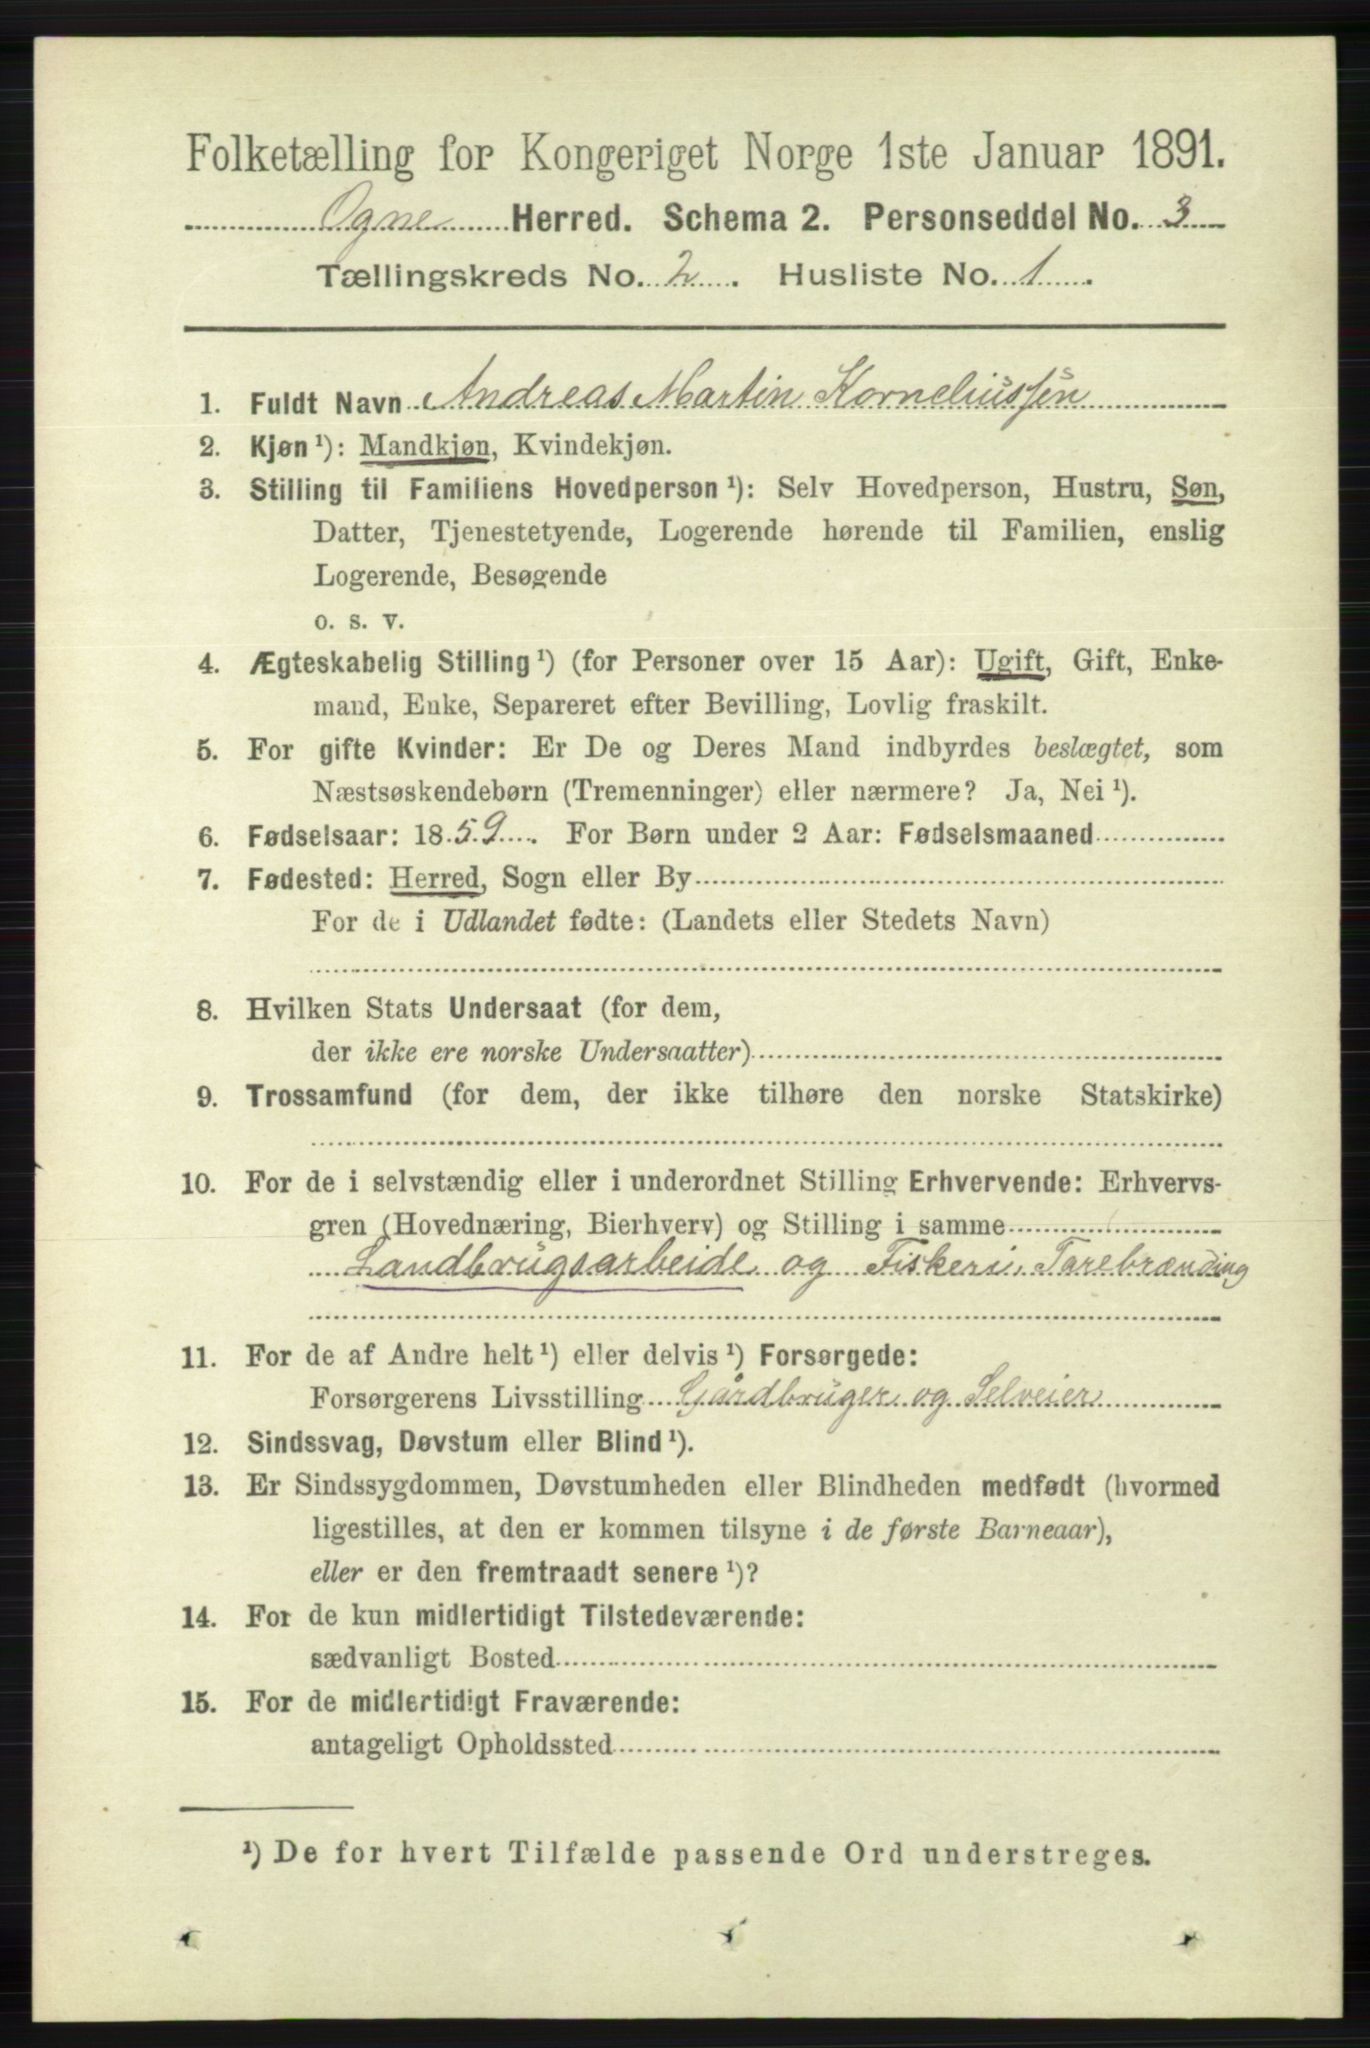 Folketælling for Kongeriget Norge 1ste Januar 1891.
Ogne Herred. Schema 2. Personseddel No. 3
Tællingskreds No. 2. Husliste No. 1.
1. Fuldt Navn Andreas Martin Korneliussen
2. Kjøn ¹): Mandkjøn, Kvindekjøn.
3. Stilling til Familiens Hovedperson ¹): Selv Hovedperson, Hustru, Søn,
Datter, Tjenestetyende, Logerende hørende til Familien, enslig
Logerende, Besøgende
o. s. v.
4. Ægteskabelig Stilling ¹) (for Personer over 15 Aar): Ugift, Gift, Enke-
mand, Enke, Separeret efter Bevilling, Lovlig fraskilt.
5. For gifte Kvinder: Er De og Deres Mand indbyrdes beslægtet, som
Næstsøskendebørn (Tremenninger) eller nærmere? Ja, Nei ¹).
6. Fødselsaar: 1859. For Børn under 2 Aar: Fødselsmaaned
7. Fødested: Herred, Sogn eller By
For de i Udlandet fødte: (Landets eller Stedets Navn)
8. Hvilken Stats Undersaat (for dem,
der ikke ere norske Undersaatter)
9. Trossamfund (for dem, der ikke tilhøre den norske Statskirke)
10. For de i selvstændig eller i underordnet Stilling Erhvervende: Erhvervs-
gren (Hovednæring, Bierhverv) og Stilling i samme
Landbrugsarbeide og Fiskeri, Tarebrænding
11. For de af Andre helt ¹) eller delvis ¹) Forsørgede:
Forsørgerens Livsstilling Gårdbruger og Selveier
12. Sindssvag, Døvstum eller Blind ¹).
13. Er Sindssygdommen, Døvstumheden eller Blindheden medfødt (hvormed
ligestilles, at den er kommen tilsyne i de første Barneaar),
eller er den fremtraadt senere ¹)?
14. For de kun midlertidigt Tilstedeværende:
sædvanligt Bosted
15. For de midlertidigt Fraværende:
antageligt Opholdssted
¹) De for hvert Tilfælde passende Ord understreges.